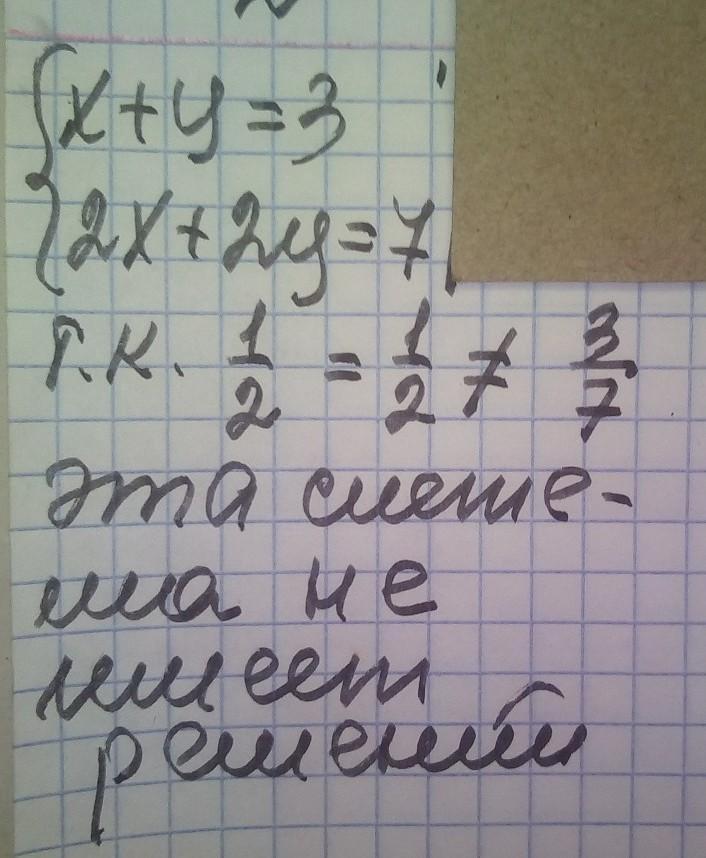 {x+y=3
{2x+2y=7
т.к. 1/2 = 1/2 ≠ 3/7
эта систе-
ма не
имеет
решений